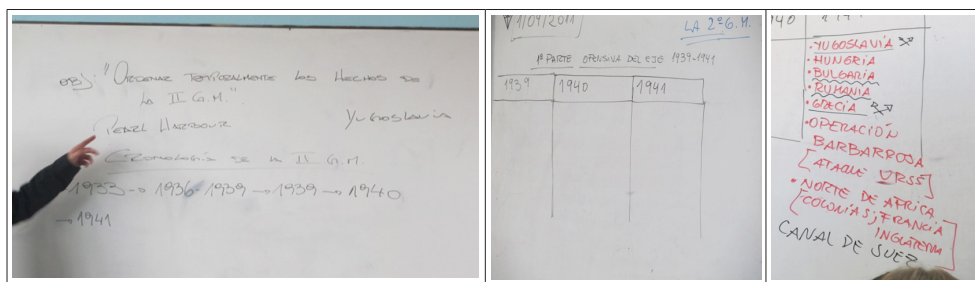 OBJ: "ORDENAR TEMPORALMENTE LOS HECHOS DE
LA II G.M."
PEARL HARBOUR
YUGOSLAVIA
CRONOLOGÍA DE LA II G.M.
1933 → 1936-1939 → 1939 → 1940
→ 1941
1/04/2011
LA 2ª G.M.
1ª PARTE OFENSIVA DEL EJE 1939-1941
1939 1940 1941
• YUGOSLAVIA
• HUNGRIA
• BULGARIA
• RUMANIA
• GRECIA
• OPERACIÓN
BARBARROJA
[ATAQUE URSS]
• NORTE DE AFRICA
[COLONIAS; FRANCIA
INGLATERRA]
CANAL DE SUEZ